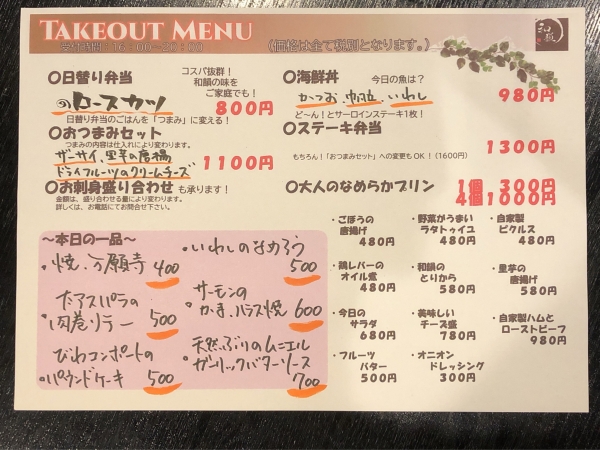 TAKEOUT MENU
受付時間：16：00～20：00
（価格は全て税別となります。）
〇日替り弁当
コスパ抜群！
和韻の味を
ご家庭でも！
ロースカツ
800円
日替り弁当のごはんを「つまみ」に変える！
〇おつまみセット
つまみの内容は仕入れにより変わります。
ザーサイ、里芋の唐揚
ドライフルーツのクリームチーズ
1100円
〇お刺身盛り合わせ も承ります！
金額は、盛り合わせる量により変わります。
詳しくは、お電話にてお問合せ下さい。
〇海鮮丼
今日の魚は？
かつお、帆立、いわし
980円
ど～ん！とサーロインステーキ1枚！
〇ステーキ弁当
1300円
もちろん！「おつまみセット」への変更もOK！（1600円）
〇大人のなめらかプリン
1個 300円
4個1000円
～本日の一品～
・焼、万願寺 400
・いわしのなめろう 500
・アスパラの
肉巻フリテー 500
・サーモンの
かま、ハラス焼 600
・びわコンポートの
パウンドケーキ 500
・天然ぶりのムニエル
ガーリックバターソース 700
・ごぼうの
唐揚げ
480円
・野菜がうまい
ラタトゥイユ
480円
・自家製
ピクルス
480円
・鶏レバーの
オイル煮
480円
・和韻の
とりから
580円
・里芋の
唐揚げ
580円
・今日の
サラダ
680円
・美味しい
チーズ盛
780円
・自家製ハムと
ローストビーフ
980円
・フルーツ
バター
500円
・オニオン
ドレッシング
300円